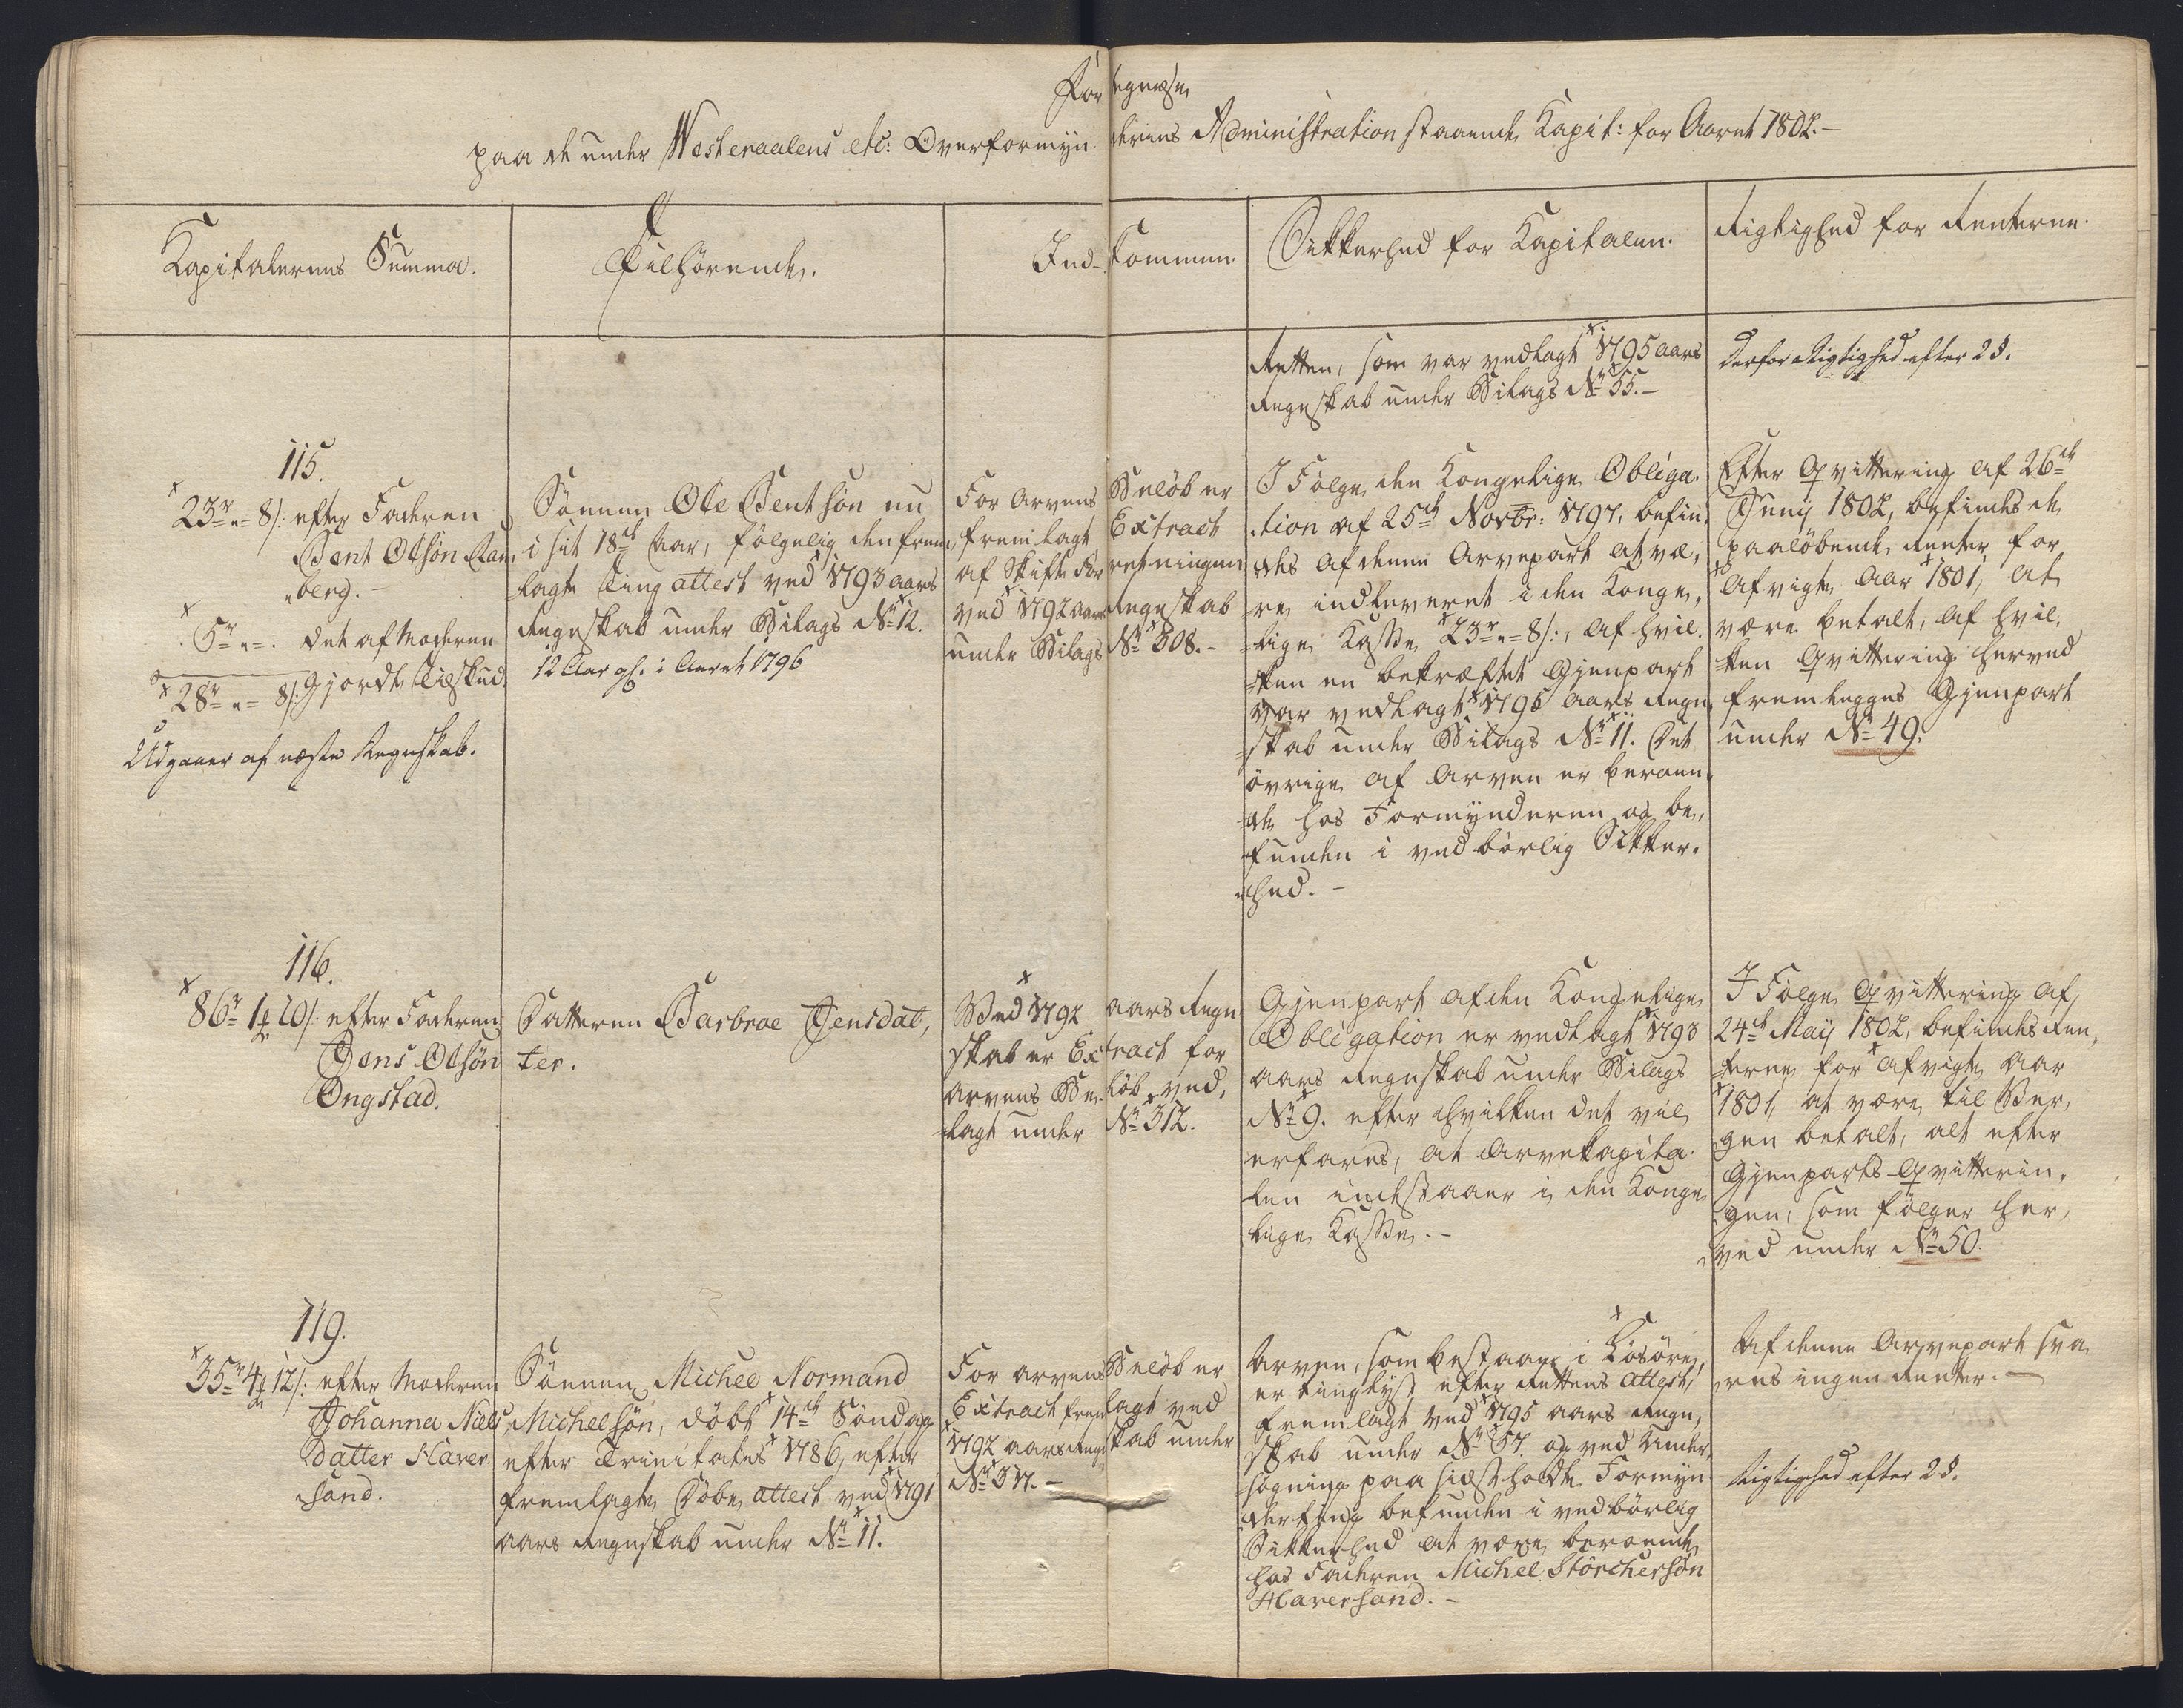 Fortegnelse
paa de under Westeraalens etc: Overformynderies Administration staaende Kapit: for Aaret 1802.-
Kapitalernes Summa.
Tilhørende.
Ind-kommen.
Sikkerhed for Kapitalen.
Rigtighed for Renterne.
Retten, som var vedlagt 1795 aars
Regnskab under Bilags No 55.-
Derfor Rigtighed efter 2 §.
115.
23r „ 8/: efter Faderen
Bent Olsøn
berg.-
5r „ . det af Moderen
28r „ 8/: Gjordte Tilskud.
Udgaaer af næste Regnskab.
Sønnen Ole Bentsøn nu
i sit 18de Aar, følgelig den frem
lagte Ting attest ved 1793 aars
Regnskab under Bilags No 12.
12 Aar gl. i Aaret 1796
For Arvens Beløb er
fremlagt Extract
af Skifte Forretningen
ved 1792 aars Regnskab
under Bilags No 308.-
I Følge den Kongelige Obliga-
tion af 25de Novbr: 1797, befin-
des af denne Arvepart at væ-
re indleveret i den Konge-
lige Kasse 23r „ 8/:, af hvil-
ken en bekræftet Gjenpart
var vedlagt 1795 aars Regn-
skab under Bilags No 11. Det
øvrige af Arven er beroen-
de hos Formynderen og be-
funden i vedbørlig Sikker-
hed.-
Efter Qvittering af 26de
Juny 1802, befindes de
paaløbende Renter for
afvigte Aar 1801, at
være betalt, af hvil-
ken Qvittering herved
fremlegges Gjenpart
under No 49.
116.
86r 1 10/: efter Faderen
Jens Olsøn
Ongstad.
Datteren Barbroe Jensdat-
ter.
Ved 1792 aars Regn
skab er Extract for
Arvens Beløb ved-
lagt under No 312.
Gjenpart af den Kongelige
Obligation er vedlagt 1793
aars Regnskab under Bilags
No 9. efter hvilken det vil
erfares, at Arvekapita-
len indestaaer i den Konge
lige Kasse.-
I Følge Qvittering af
24de May 1802, befindes Ren-
terne for afvigte Aar
1801, at være til Ber-
gen betalt, alt efter
Gjenparts-Qvitterin-
gen, som følger her-
ved under No 50.
119.
35r 4 12/: efter Moderen
Johanna Niels
Datter Haver
sand.
Sønnen Michel Normand
Michelsøn, døbt 14de Søndag
efter Trinitatis 1786, efter
fremlagte Døbe attest ved 1791
aars Regnskab under No 11.
For Arvens Beløb er
Extract fremlagt ved
1792 aars Regnskab under
No 317.-
Arven, som bestaaer i Løsøre,
er tinglyst efter Rettens Attest,
fremlagt ved 1795 aars Regn-
skab under No 57. og ved Under-
søgning paa sidstholdte Formyn
derting befunden i vedbørlig
Sikkerhed at være beroende
hos Faderen Michel Störchersøn
Haversand.-
Af denne Arvepart sva
res ingen Renter.-
Rigtighed efter 2 §.